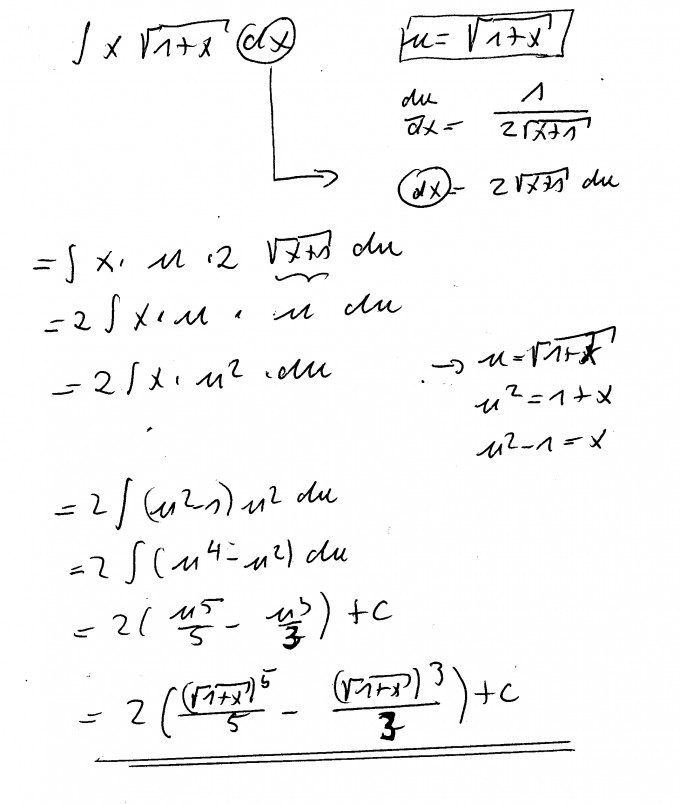 ∫ x √(1+x) dx    u = √(1+x)
du/dx = 1/(2√(x+1))
dx = 2√(x+1) du
= ∫ x · u · 2 √(x+1) du
= 2 ∫ x · u · u du
= 2 ∫ x · u² · du    → u = √(1+x)
u² = 1+x
u²-1 = x
= 2 ∫ (u²-1) u² du
= 2 ∫ (u⁴ - u²) du
= 2 ( u⁵/5 - u³/3 ) + c
= 2 ( (√(1+x))⁵/5 - (√(1+x))³/3 ) + c